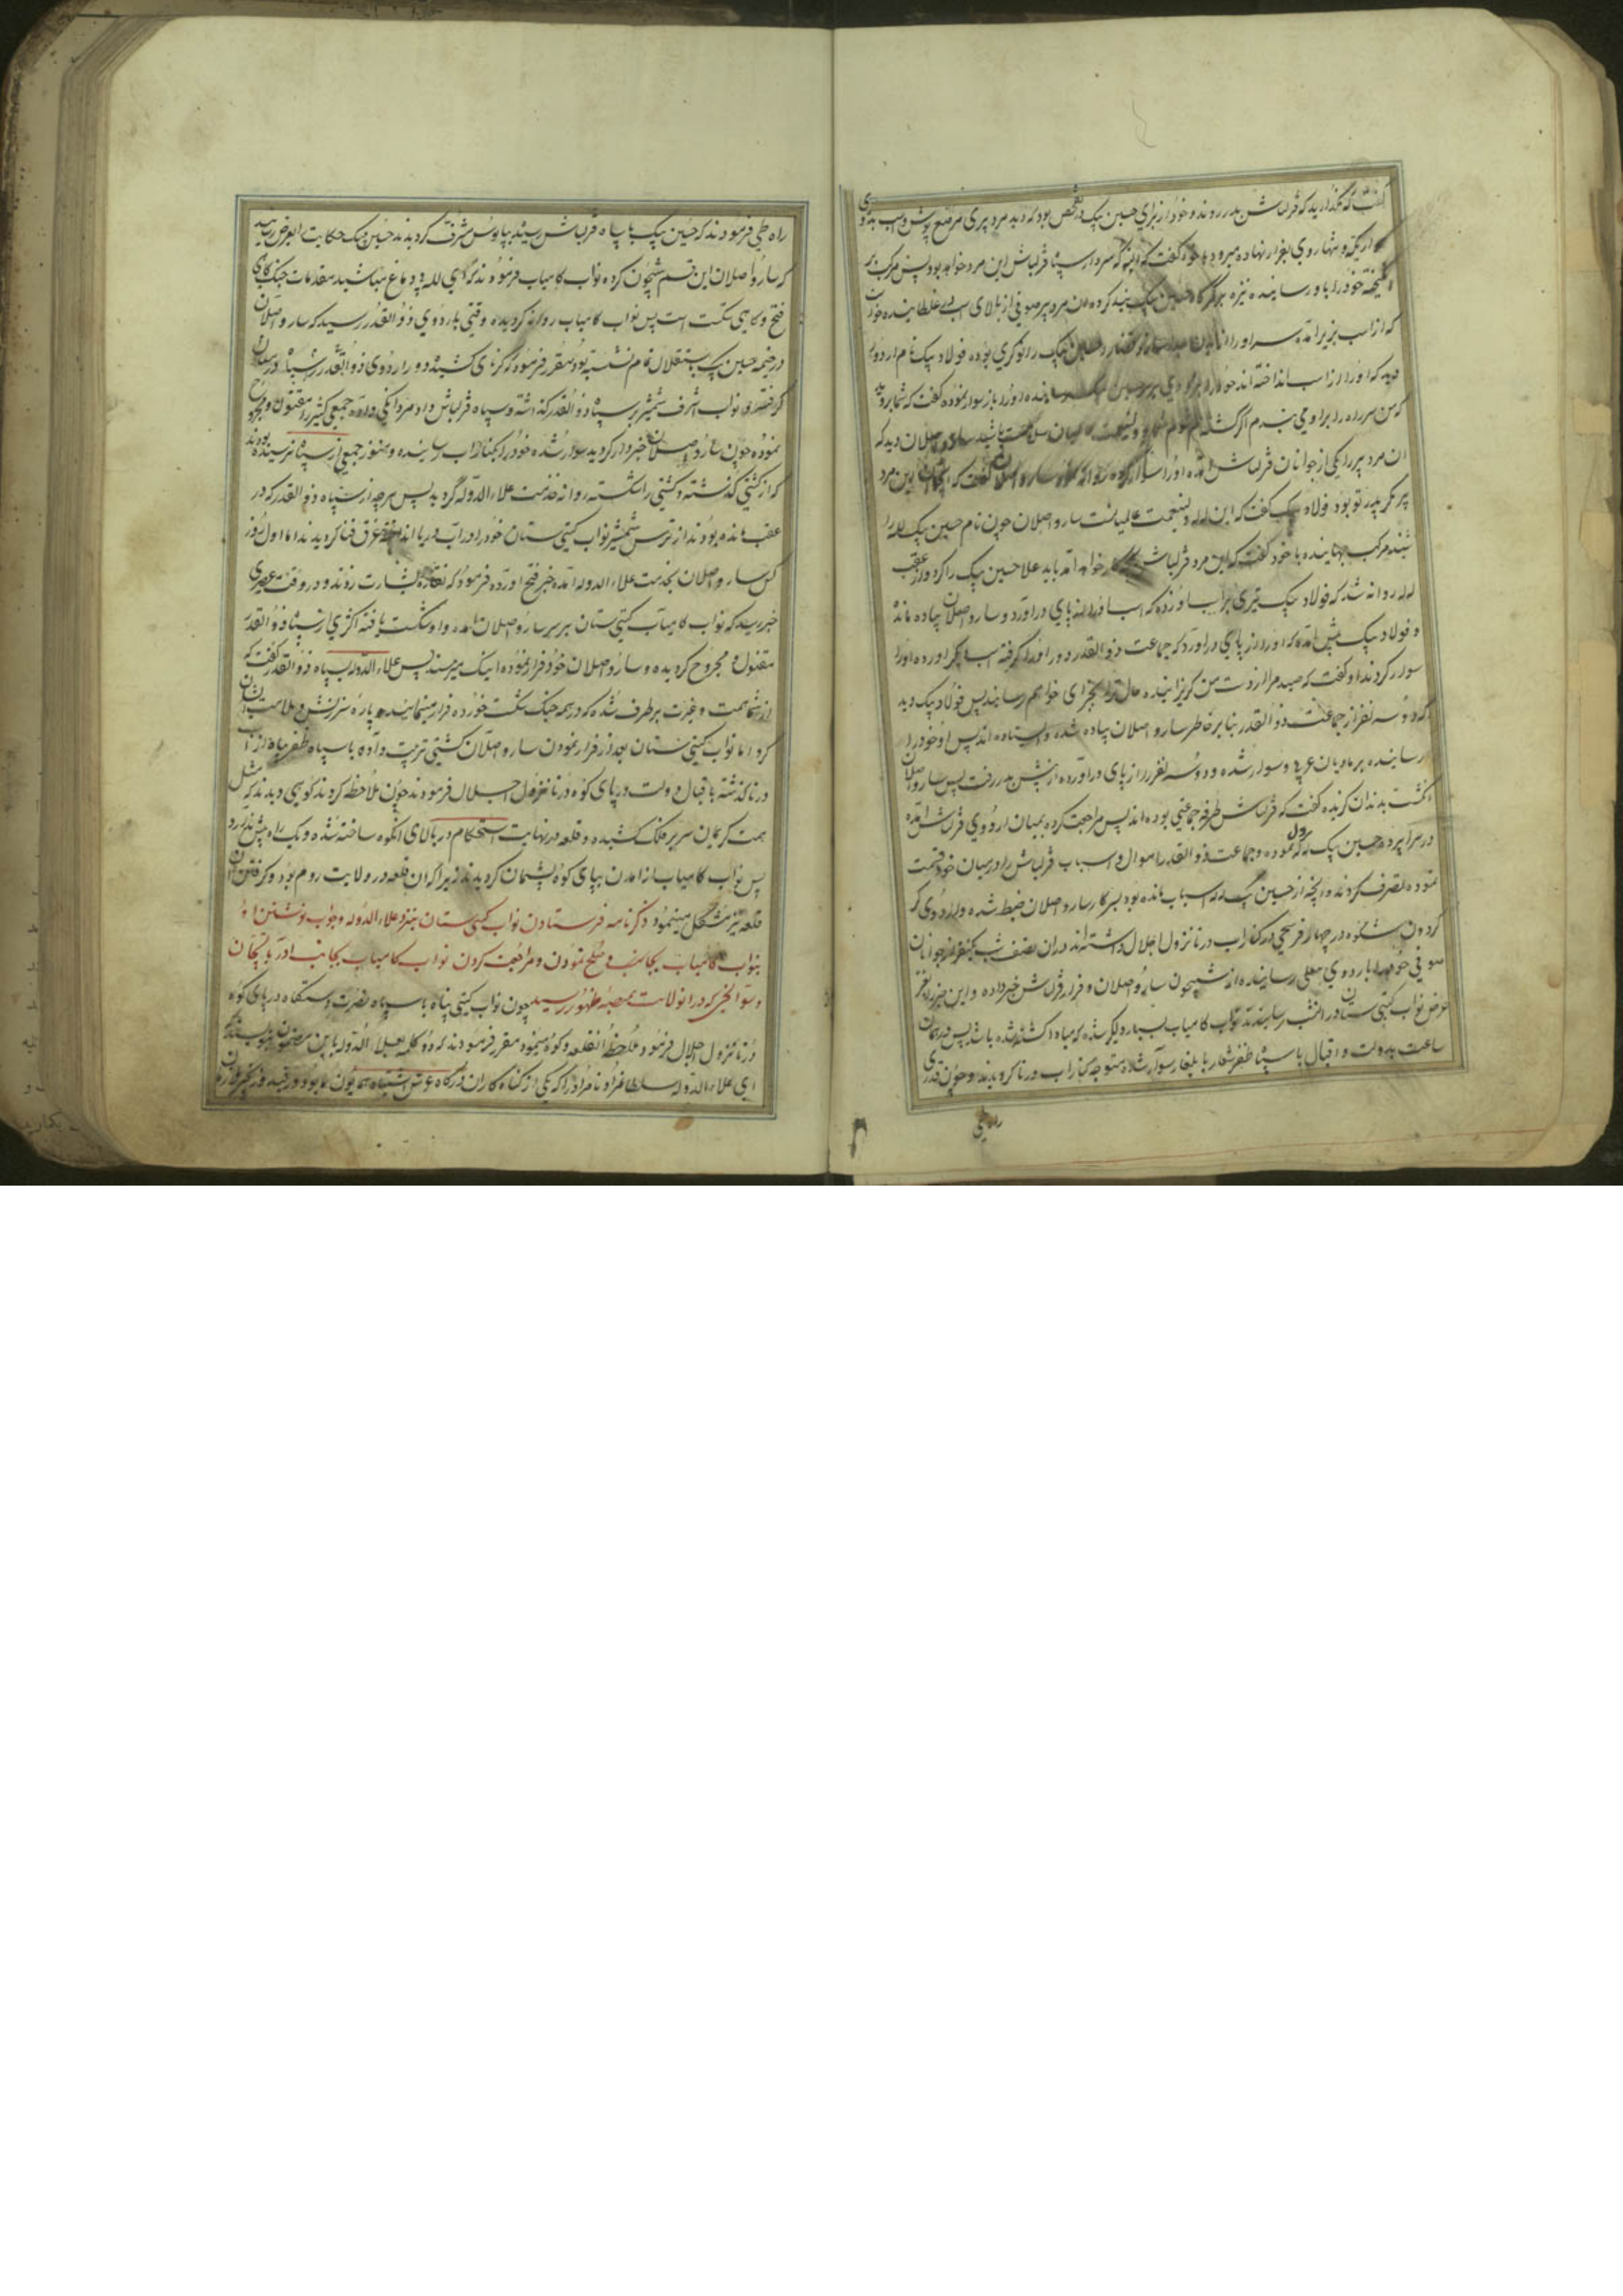 گفت که مگذارید که قزلباش بدر روند و خود از برای حسین بیک در تفحص بود که دید مرد پیری مرقع پوش و اسب بدوی
و تنها روی بفرار نهاده میرود با خود گفت که البته که سردار سپاه قزلباش این مرد خواهد بود پس مرکب بر
انگیخته خود را باو رسانیده نیزه بر کمرگاه حسین بیک بند کرده آن مرد پیر صوفی از بالای اسب غلطانیده خواست
که از اسب بزیر آمده سر او را از بدن جدا سازد قضا را حسین بیک را نوکری بوده فولاد بیک نام
دید که او را از اسب انداخته اند خود را بر سر حسین بیک رسانیده او را باز سوار نموده گفت که شما بروید
که من سر راه را بر او می بندم اگر کشته شوم سلامت باشید سارو اصلان دید که
آن مرد پیر را یکی از جوانان قزلباش آمده او را سوار کرده روانه کرد سارو اصلان گفت که این مرد
پیر مگر پدر تو بود فولاد بیک گفت که این لله و لینعمت عالمیانست سارو اصلان چون نام حسین بیک لله را
شنید مرکب جهانیده با خود گفت که این مرد قزلباش خواهد آمد باید علاج حسین بیک را کرد و از عقب
لله روانه شد که فولاد بیک تیری بر اسب او زده که اسب او را از پای درآورد و سارو اصلان پیاده مانده
و فولاد بیک پیش آمد که او را از پای درآورد که جماعت ذوالقدر دور او را گرفته اسب دیگر آورده او را
سوار کردند او گفت که صید مرا از دست من گریزانیده حال ترا بجزای خواهم رسانید پس فولاد بیک دید
که دو سه نفر از جماعت ذوالقدر بنا بر خاطر سارو اصلان پیاده شده و ایستاده اند پس او خود را
رسانیده بر مادیان عربی سوار شده و دو سه نفر را از پای درآورده از پیش بدر رفت پس سارو اصلان
انگشت بدندان گزیده گفت که قزلباش طرفه جماعتی بوده اند پس مراجعت کرده بمیان اردوی قزلباش آمده
در سراپرده حسین بیک لله نزول نموده و جماعت ذوالقدر اموال و اسباب قزلباش را در میان خود قسمت
نموده تصرف کردند و آنچه از حسین بیک لله اسباب مانده بود بسرکار سارو اصلان ضبط شده و اردوی که
گردون شکوه در چهار فرسخی در کنار آب درنا نزول اجلال داشته اند در آن نصف شب یکنفر از جوانان
صوفی خود را باردوی معلی رسانیده از شبیخون سارو اصلان و فرار قزلباش خبر داده و این خبر را
عرض نواب گیتی ستان در آنشب رسانیدند نواب کامیاب بسیار دلگیر شده که مبادا لله کشته شده باشد پس در همان
ساعت بدولت و اقبال با سپاه ظفر شعار بایلغار سوار شده متوجه کنار آب درنا گردیدند و چون قدری
راه طی
راه طی فرمودند که حسین بیک با سپاه قزلباش رسیده بپابوس مشرف گردیدند حسین بیک حکایت بعرض رسانید
که سارو اصلان این قسم شبیخون کرده نواب کامیاب فرمودند که ای لله بد دماغ مباشید مقدمات جنک گاهی
فتح و گاهی شکست است پس نواب کامیاب روانه گردیده وقتی باردوی ذوالقدر رسید که سارو اصلان
در خیمه حسین بیک باستقلال تمام نشسته بود مقرر فرمود که کرنای کشیده دور اردوی ذوالقدر را سپاه در میان
گرفتند و نواب اشرف شمشیر بر سپاه ذوالقدر گذاشته و سپاه قزلباش داد مردانگی داده جمعی کثیر را مقتول و مجروح
نموده چون سارو اصلان خبردار گردید سوار شده خود را بکنار آب رسانیده و هنوز جمعی از سپاه نرسیده بودند
که از کشتی گذشته و کشتی را شکسته روانه خدمت علاء الدوله گردید پس هر چه از سپاه ذوالقدر که در
عقب مانده بودند از ترس شمشیر نواب گیتی ستان خود را در آب دریا انداخته غرق فنا گردیدند اما اول روز
کس سارو اصلان بخدمت علاء الدوله آمده خبر فتح آورده فرمود که نقاره بشارت زدند و در وقت عصری
خبر رسید که نواب کامیاب گیتی ستان بر سر سارو اصلان آمده و او شکست یافته اکثری از سپاه ذوالقدر
مقتول و مجروح گردیده و سارو اصلان خود فرار نموده اینک میرسند پس علاء الدوله بسپاه ذوالقدر گفت که
از شما همت و غیرت بر طرف شده که در همه جنک شکست خورده فرار مینمائید و پاره سرزنش و ملامت ایشان
کرد اما نواب گیتی ستان بعد از فرار نمودن سارو اصلان کشتی ترتیب داده با سپاه ظفر پناه از آب
درنا گذشته با قبال و دولت در پای کوه درنا نزول اجلال فرمودند چون ملاحظه کردند کوهی دیدند که مثل
همت کریمان سر بر فلک کشیده و قلعه در نهایت استحکام در بالای آن کوه ساخته شده و یک راه بیش ندارد
پس نواب کامیاب از آمدن بپای کوه پشیمان گردیدند زیرا که آن قلعه در ولایت روم بود و گرفتن آن
قلعه نیز مشکل مینمود ذکر نامه فرستادن نواب گیتی ستان بنزد علاء الدوله و جواب نوشتن او
بنواب کامیاب و صلح نمودن و مراجعت کردن نواب کامیاب بجانب آذربایجان
و سوانحی که در آنولایت بمنصه ظهور رسید چون نواب گیتی پناه با سپاه نصرت دستگاه در پای کوه
درنا نزول اجلال فرمود ملاحظه آنقلعه و کوه مینمود مقرر فرمودند که دو کلمه بعلاء الدوله باین مضمون بنویسند که
ای علاء الدوله سلطانمراد نامراد را که یکی از گناه کاران درگاه عرش اشتباه همایون ما بود